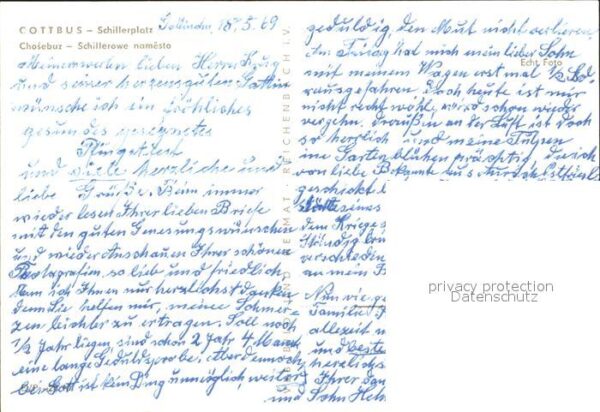 COTTBUS – Schillerplatz
Chośebuz – Schillerowe naměsto
18.5.69
Meinen werten lieben Herrn Krug
und seiner herzensguten Gattin
wünsche ich ein fröhliches
gesundes gesegnetes
Pfingstfest
und viele herzliche und
liebe Grüße. Beim immer
wieder lesen Ihrer lieben Briefe
mit den guten Genesungswünschen
und wieder Anschauen Ihrer schönen
Fotografien, so lieb und friedlich
kann ich Ihnen nur herzlichst danken
denn Sie helfen mir, meine Schmer-
zen leichter zu ertragen. Soll noch
1/2 Jahr liegen, sind schon 2 Jahr 4 Monate
eine lange Geduldsprobe. Aber dennoch
bei Gott ist kein Ding unmöglich, weiter
geduldig den Mut nicht verlieren.
Am Freitag hat mich mein lieber Sohn
Echt Foto
mit meinem Wagen erst mal 1/2 Std.
rausgefahren. Doch heute ist mir
nicht recht wohl, wird schon wieder
vergehn, draußen an der Luft ist doch
so herrlich und meine Tulpen
im Garten blühen prächtig, die ich
von liebe Bekannte aus
geschickt
dem Kriege
ständig
verschieden
an mein
Nun
Familie
allezeit
und beste
herzliches
Ihrer
und Sohn
REICHENBACH i. V.
privacy protection
Datenschutz